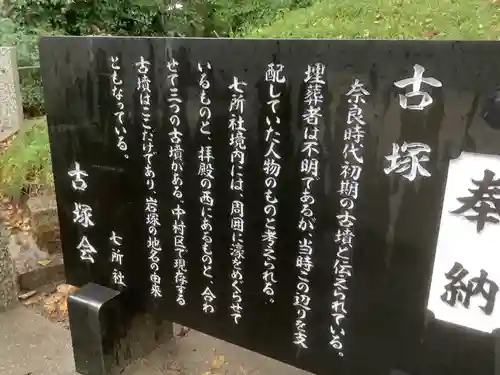 奉納
古塚
奈良時代初期の古墳と伝えられている。
埋葬者は不明であるが、当時この辺りを支
配していた人物のものと考えられる。
七所社境内には、周囲に濠をめぐらせて
いるものと、拝殿の西にあるものと、合わ
せて三つの古墳がある。中村区で現存する
古墳はここだけであり、岩塚の地名の由来
ともなっている。
七所社
古塚会